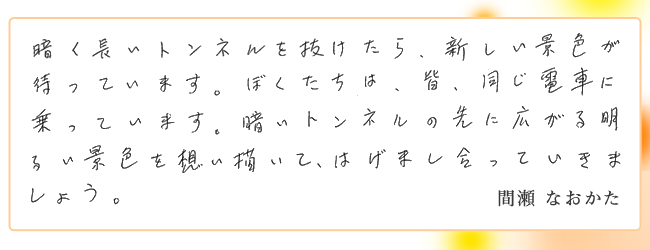 暗く長いトンネルを抜けたら、新しい景色が
待っています。ぼくたちは、皆、同じ電車に
乗っています。暗いトンネルの先に広がる明
るい景色を想い描いて、はげまし合っていきま
しょう。
間瀬 なおかた